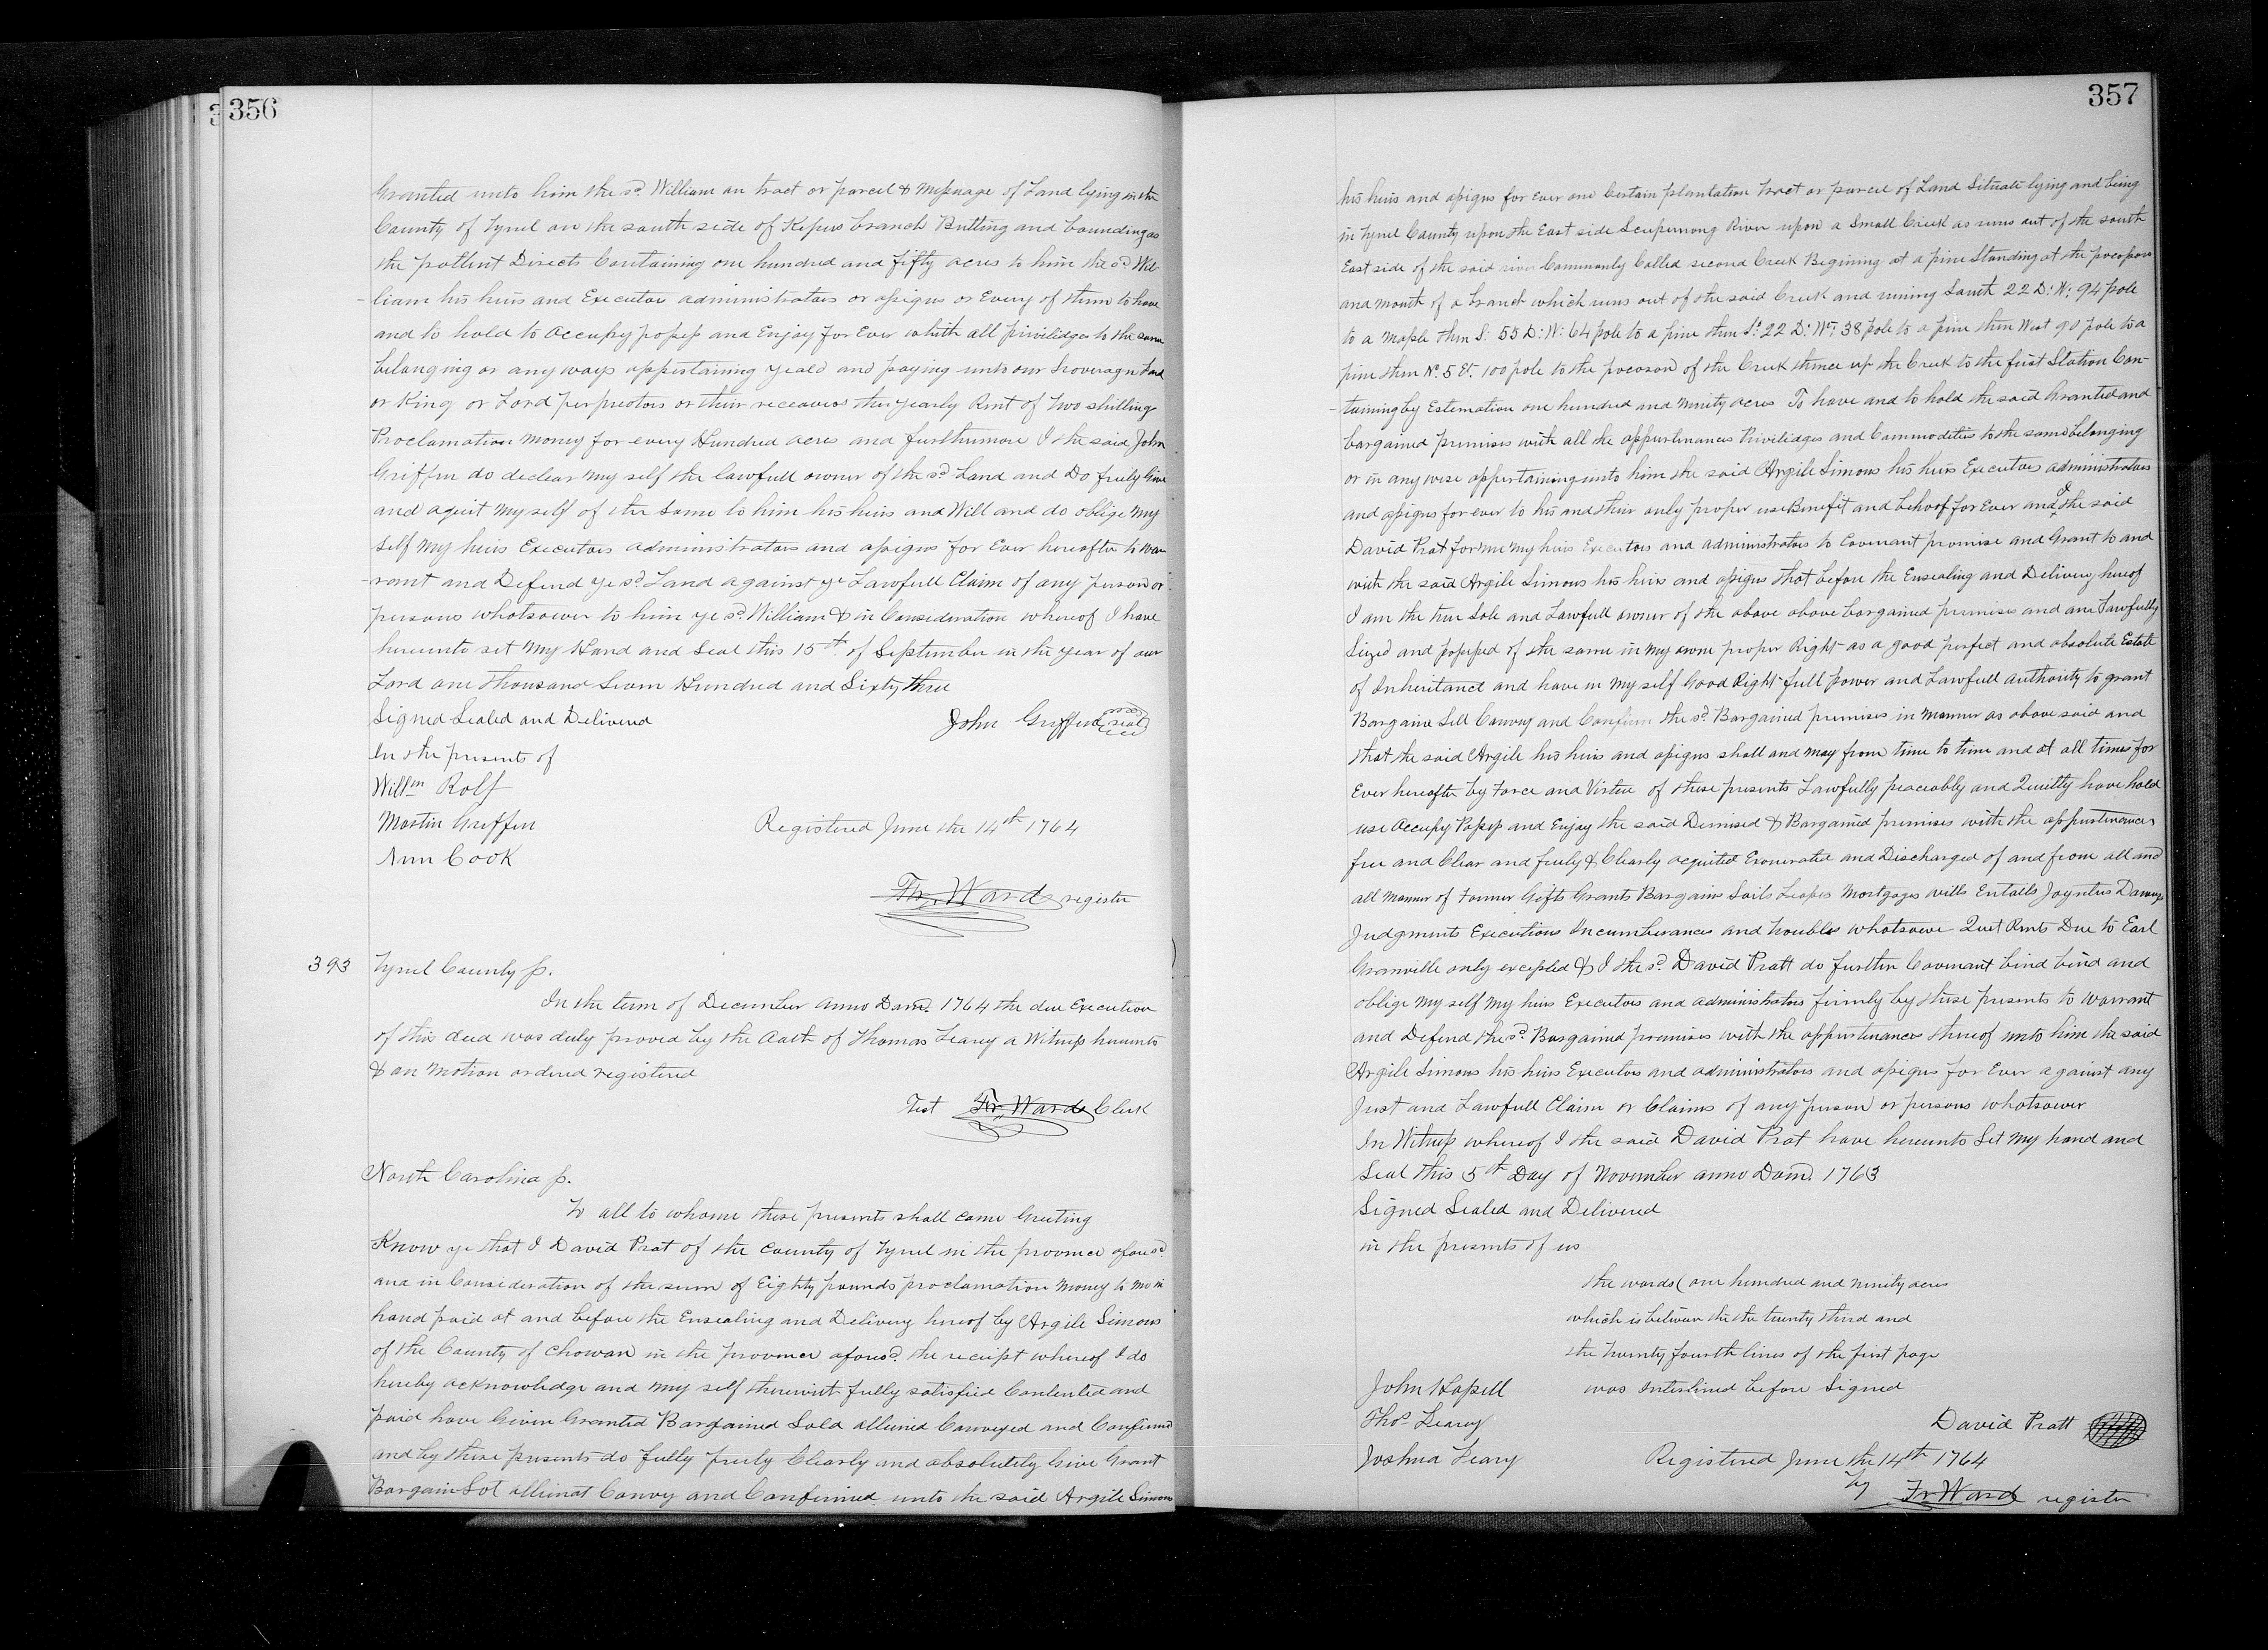 356
Granted unto him the sd. William an tract or parcel & Messuage of Land lying in the
County of Tyrel on the south side of Kepus branch Butting and bounding as
the pattent Directs Containing one hundred and fifty acres to him the sd Wil-
liam his heirs and Executor administrators or assigns or Every of them to have
and to hold to Occupy possess and Enjoy for Ever whith all priviledges to the same
belonging or any ways appertaining yeald and paying unto our Soveragn Lord
or King or Lord perprietors or their receaver the yearly Rent of two shillings
Proclamation money for every Hundred acres and furthermore I the said John
Griffin do declear my self the lawfull owner of the sd Land and Do freely Give
and aquit my self of the Same to him his heirs and Will and do oblige my
self my heirs Executors administrators and assigns for Ever hereafter to war-
rant and Defend ye sd. Land against ye Lawfull Claim of any person or
persons whatsoever to him ye sd. William & in Consideration whereof I have
hereunto set my Hand and Seal this 15th of September in the year of our
Lord one thousand Seven Hundred and Sixty three
Signed Sealed and Delivered John Griffin seal
In the presents of
Willm Rolf
Martin Griffin Registered June the 14th 1764
Ann Cook
Fr. Ward register
393 Tyrel County ss.
In the term of December anno Dom. 1764 the due Execution
of this deed was duly proved by the Oath of Thomas Leary a Witness hereunto
& on Motion ordered registered
Test Fr. Ward Clerk
North Carolina ss.
To all to whome these presents shall come Greeting
Know ye that I David Prat of the County of Tyrel in the province aforesd
and in Consideration of the sum of Eighty pounds proclamation money to me in
hand paid at and before the Ensealing and Delivery hereof by Argile Simons
of the County of Chowan in the province aforesd. the receipt whereof I do
hereby acknowledge and my self therewit fully satisfied Contented and
paid have Given Granted Bargained Sold alliened Conveyed and Confirmed
and by these presents do fully freely Clearly and absolutely Give Grant
Bargain Sol allienat Convey and Confirmed unto the said Argile Simons
357
his heirs and assigns for Ever one Certain plantation tract or parcel of Land Situate lying and being
in Tyrel County upon the East side Scupernong River upon a Small Creek as runs out of the south
East side of the said river Commonly Called second Creek Begining at a pine Standing at the pocoson
and mouth of a branch which runs out of the said Creek and runing South 22 D: W: 94 pole
to a maple then S: 55 D: W: 64 pole to a pine then St 22 D: Wt: 38 pole to a pine then West 90 pole to a
pine then No. 5 Et. 100 pole to the pocoson of the Creek thence up the Creek to the first Station Con-
taining by Estemation one hundred and ninity acres To have and to hold the said Granted and
bargained premises with all the appurtinances Privilidges and Commodities to the same belonging
or in any wise appertaining unto him the said Argile Simons his heirs Executors administrators
and assigns for ever to his and their only proper use Benefit and behoof for Ever and I the said
David Prat for me my heirs Executors and administrators to Covenant promise and Grant to and
with the said Argile Simons his heirs and assigns that before the Ensealing and Delivery hereof
I am the true Sole and Lawfull owner of the above above bargained premises and am Lawfully
Seized and possessed of the same in my owne proper Right as a good perfect and absolute Estate
of Inheritance and have in my self Good Right full power and Lawfull authority to grant
Bargain Sell Convey and Confirm the sd. Bargained premises in Manner as above said and
that the said Argile his heirs and assigns shall and may from time to time and at all times for
Ever hereafter by Force and Virtue of these presents Lawfully peaceably and Quietly have hold
use Occupy Posess and Enjoy the said Demised & Bargained premises with the appurtenances
free and Clear and freely & Clearly acquited Exonerated and Discharged of and from all and
all manner of Former Gifts Grants Bargain Sails Leases Mortgages wills Entails Joynters Dowrys
Judgments Executions Incumberances and troubles whatsoeve Quit Rents Due to Earl
Granville only excepted & I the sd. David Pratt do further Covenant bind bind and
oblige my self my heirs Executors and administrators firmly by these presents to warrant
and Defend the sd. Bargained premises with the appurtenances thereof unto him the said
Argile Simons his heirs Executors and administrators and assigns for Ever against any
Just and Lawfull Claim or Claims of any person or persons whatsoever
In Witness whereof I the said David Prat have hereunto Set my hand and
Seal this 5th Day of November anno Dom. 1763
Signed Sealed and Delivered
in the presents of us
the words (one hundred and ninity acres
which is between the the twenty third and
the twenty fourth lines of the first page
John Hassell was Interlined before Signed
Thos. Leary David Pratt
Joshua Leary Registered June the 14th 1764
by Fr. Ward register